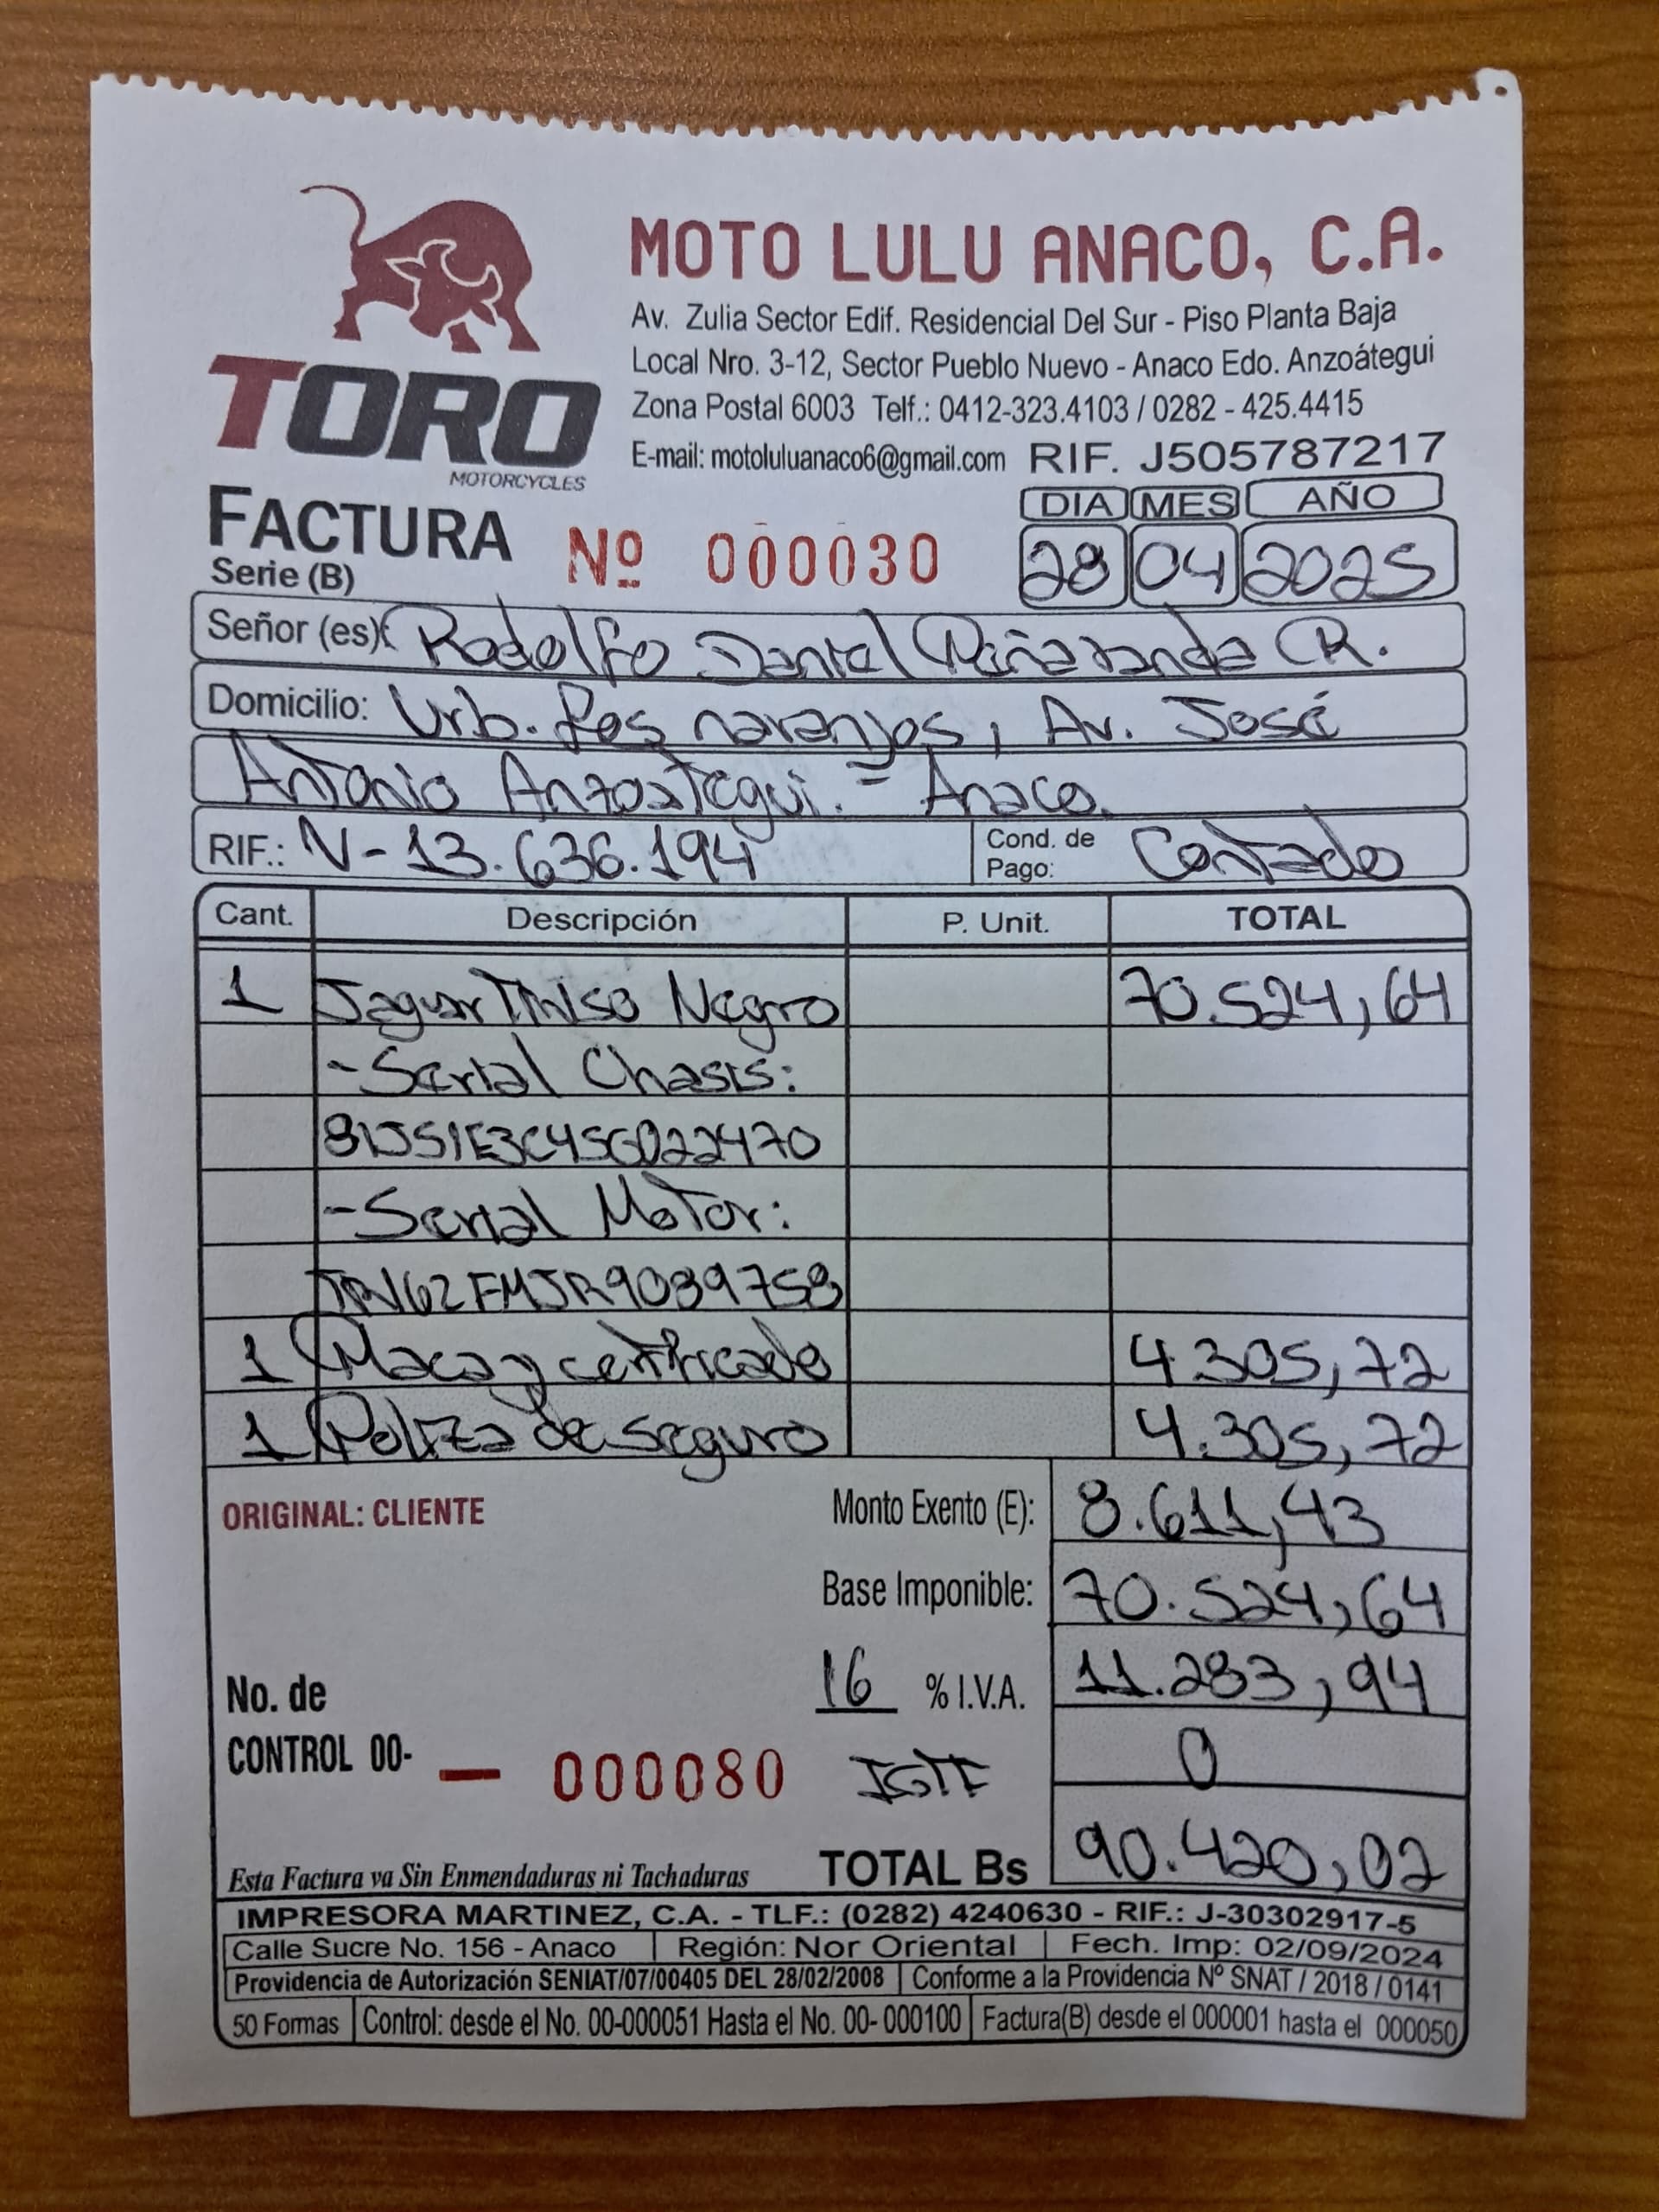 MOTO LULU ANACO, C.A.
Av. Zulia Sector Edif. Residencial Del Sur - Piso Planta Baja
Local Nro. 3-12, Sector Pueblo Nuevo - Anaco Edo. Anzoátegui
Zona Postal 6003 Telf.: 0412-323.4103 / 0282 - 425.4415
E-mail: motoluluanaco6@gmail.com RIF. J505787217
TORO
MOTORCYCLES
DIA MES AÑO
FACTURA Nº 000030 28 04 2025
Serie (B)
Señor (es): Rodolfo Daniel Peñaranda R.
Domicilio: Urb. Los naranjos, Av. José
Antonio Anzoategui. - Anaco.
RIF.: V-13.636.194 Cond. de Pago: Contado
Cant. Descripción P. Unit. TOTAL
1 Jaguar Negro 70.524,64
-Serial Chasis:
-Serial Motor:
1 Placa y certificado 4.305,72
1 Poliza de seguro 4.305,72
ORIGINAL: CLIENTE Monto Exento (E): 8.611,43
Base Imponible: 70.524,64
16 % I.V.A. 11.283,94
No. de
CONTROL 00- — 000080 IGTF 0
Esta Factura va Sin Enmendaduras ni Tachaduras TOTAL Bs 90.420,02
IMPRESORA MARTINEZ, C.A. - TLF.: (0282) 4240630 - RIF.: J-30302917-5
Calle Sucre No. 156 - Anaco Región: Nor Oriental Fech. Imp: 02/09/2024
Providencia de Autorización SENIAT/07/00405 DEL 28/02/2008 Conforme a la Providencia Nº SNAT / 2018 / 0141
50 Formas Control: desde el No. 00-000051 Hasta el No. 00- 000100 Factura(B) desde el 000001 hasta el 000050